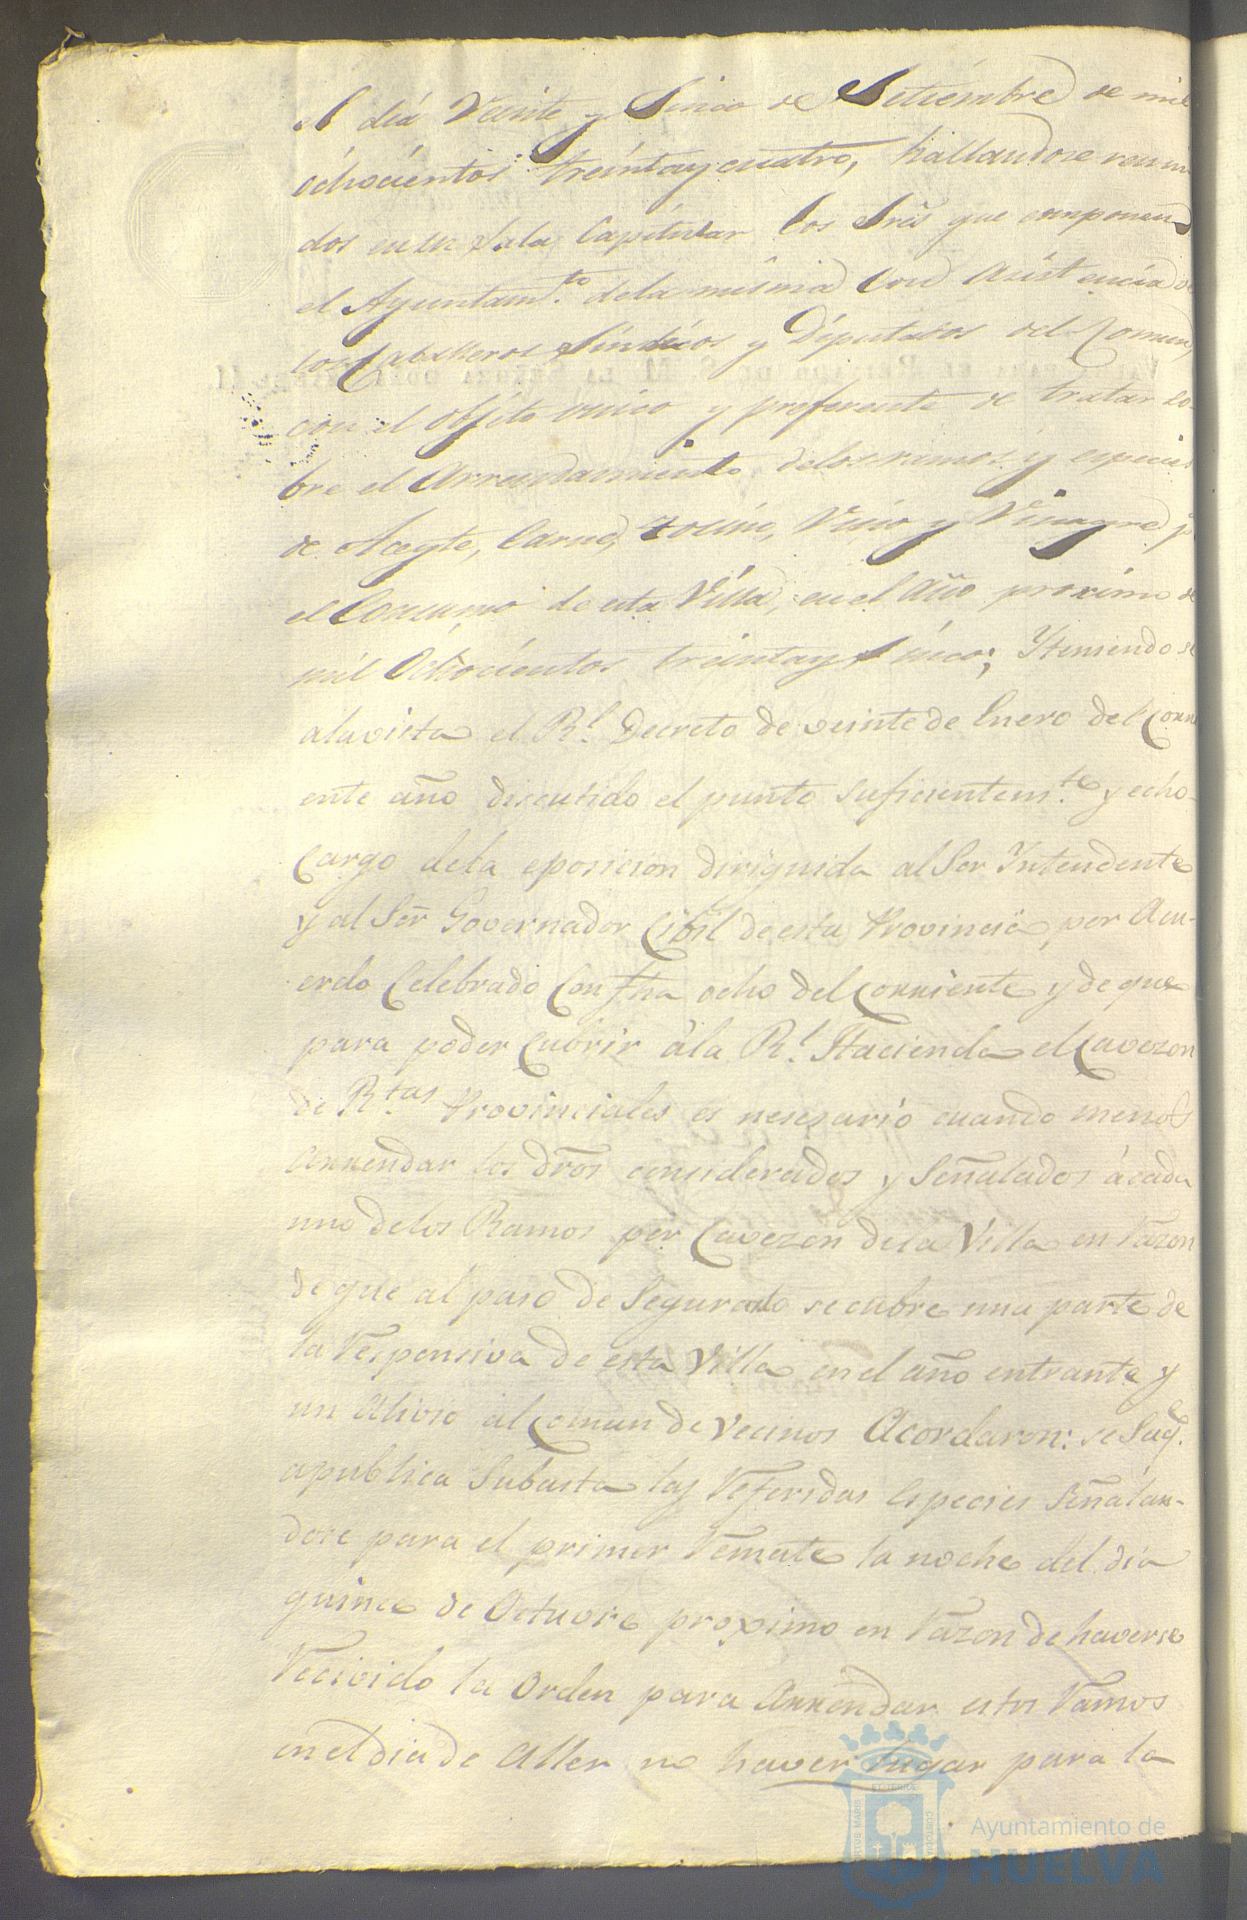 el dia Veinte y Sinco de Setiembre de mil
ôchocientos treintay cuatro, hallandose reuni
dos en su Sala Capitular los Sres que componen
el Ayuntam.to dela misma con asistencia de
los Caballeros Sindicos y Diputados del Comun,
con el objeto unico y preferente de tratar so-
bre el Arrendamiento delos ramos y especies
de Aceyte, Carne, Tocino, Vino y Vinagre p.a
el Consumo de esta Villa, en el Año proximo de
mil Ochocientos treintay Sinco; Yteniendo se
alavista el R.l Decreto de veinte de Enero del Corri
ente año discutido el punto suficientem.te y echo
Cargo dela eposicion diriguida al Sor Yntendente
y al Señ Governador Cibil de esta Provincia, por Acu-
erdo Celebrado Con fha ocho del Corriente y de que
para poder Cubrir ála R.l Hacienda el Cavezon
de R.tas Provinciales es nesesario cuando menos
Arrendar los dros considerados y Señalados ácada
uno delos Ramos por Cavezon dela Villa en razon
de que al paso de Segurado se cubre una parte de
la responsiva de esta Villa en el año entrante y
un Alivio al Comun de Vecinos Acordaron: se Saq.e
apublica Subasta las referidas Especies Señalan-
dose para el primer remate la noche del dia
quince de Octuvre proximo en razon de haverse
recivido la Orden para Arrendar estos ramos
en el dia de Aller no haver lugar para la
VALGA PARA EL REINADO DE S. M. LA SEÑORA DOÑA ISABEL II
Ayuntamiento de
HUELVA